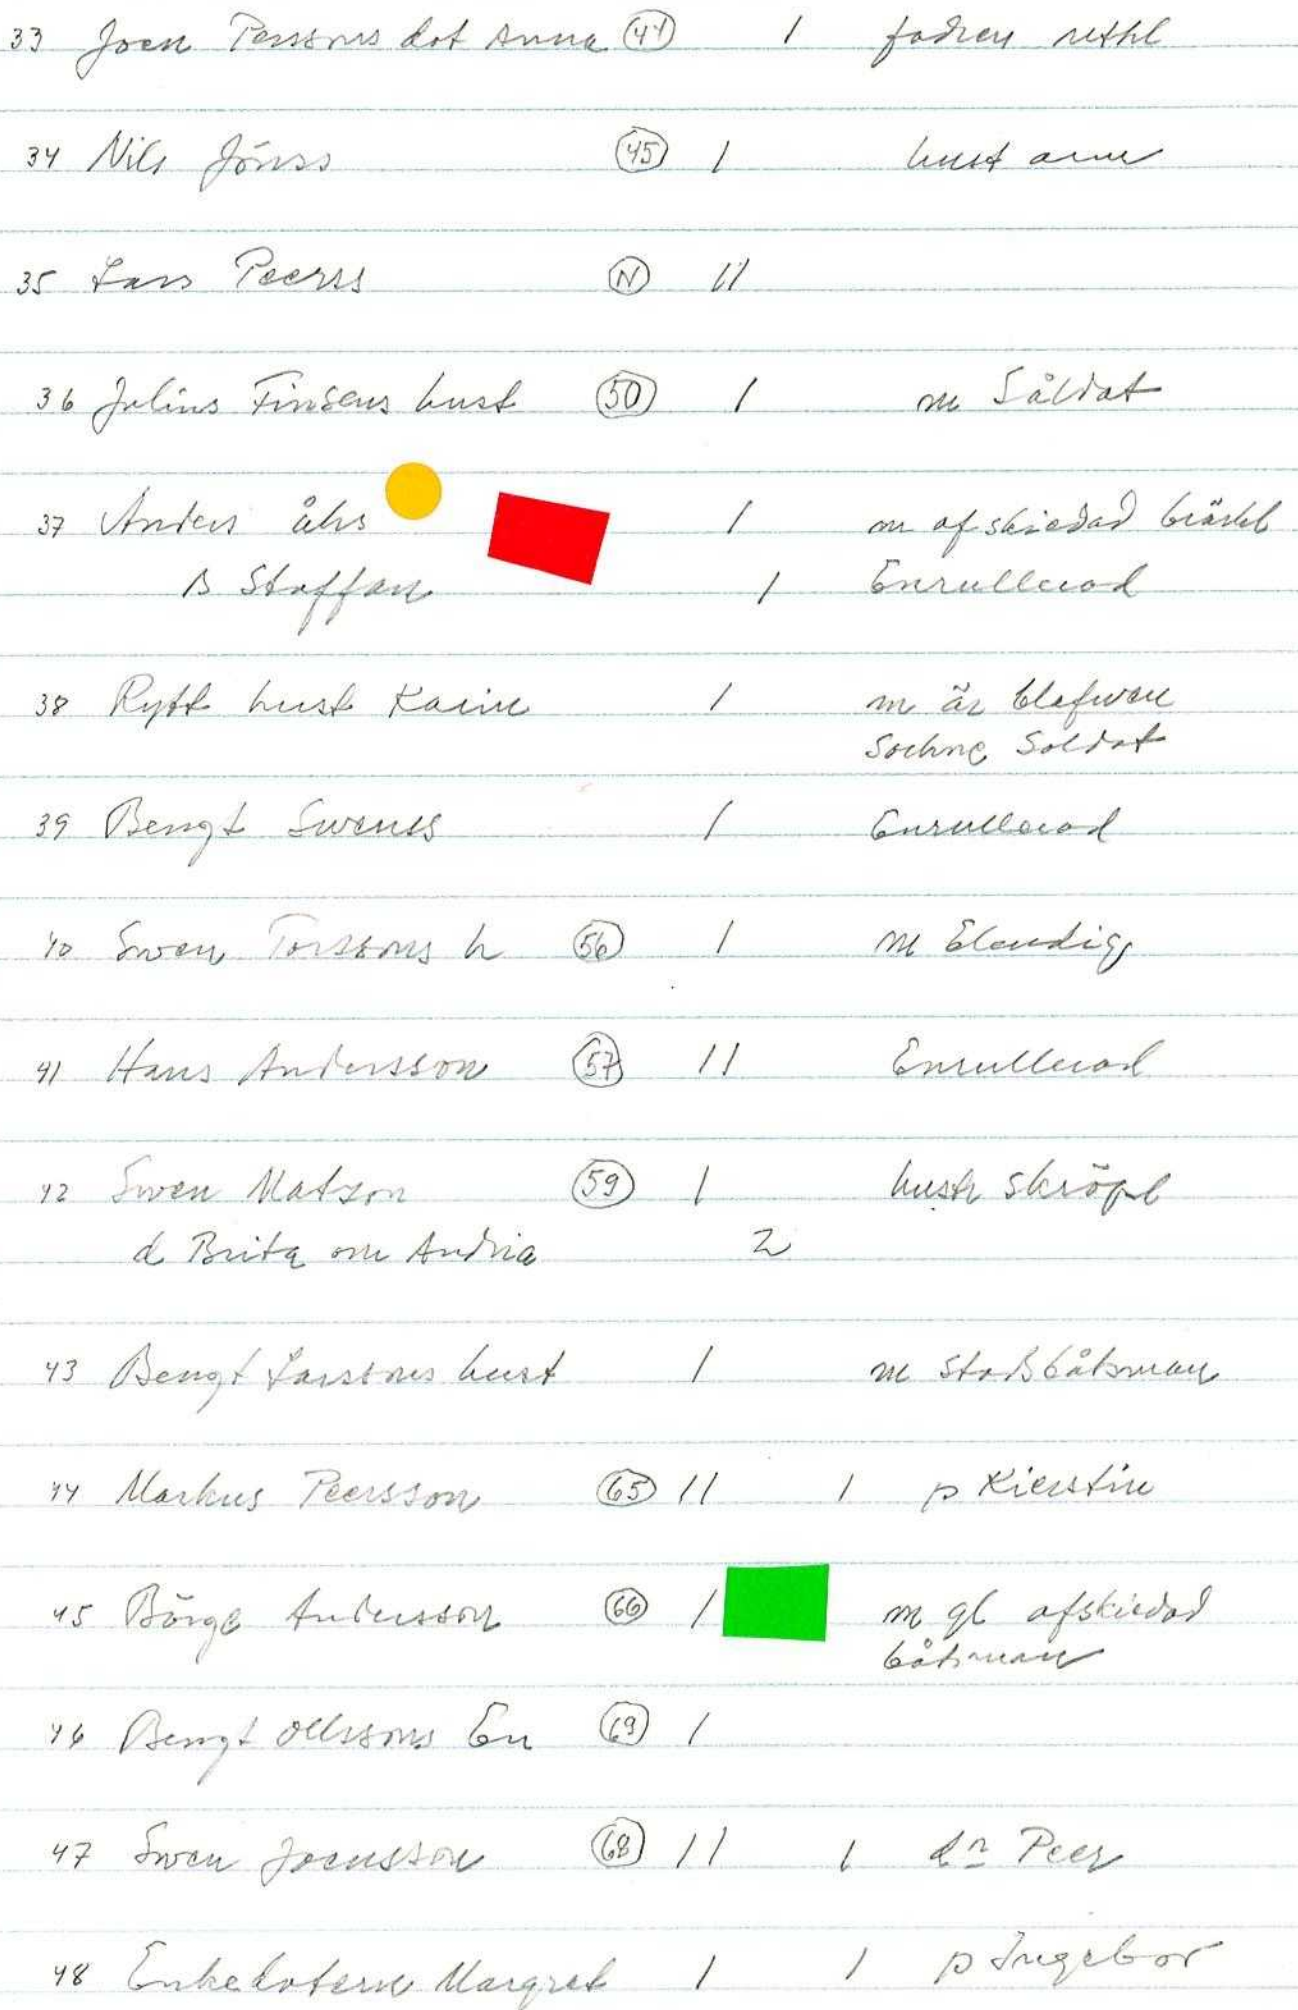 33 Joen Perssons dot Anna (44) 1 fadren
34 Nils Jönss (45) 1 hust arm
35 Lars Peerss (N) 11
36 Julius Finsens hust (50) 1 m Såldat
37 Anders åhs 1 m afskiedad
B Staffan 1 Enrullerad
38 Rytt hust Karin 1 m är blefwen
Sochne Soldat
39 Bengt Swens 1 Enrullerad
40 Swen Torssons h (56) 1 m Elendig
41 Hans Andersson (57) 11 Enrullerad
42 Swen Matzon (59) 1 hustr skröpl
d Brita om Andria 2
43 Bengt Larssons hust 1 m Stadsbåtsman
44 Markus Peersson (65) 11 1 p Kierstin
45 Börge Andersson (66) 1 m gl afskiedad
båtsman
46 Bengt Ollssons En (69) 1
47 Swen Joensson (68) 11 1 dn Peer
48 Enkedoteren Margret 1 1 p Ingebor